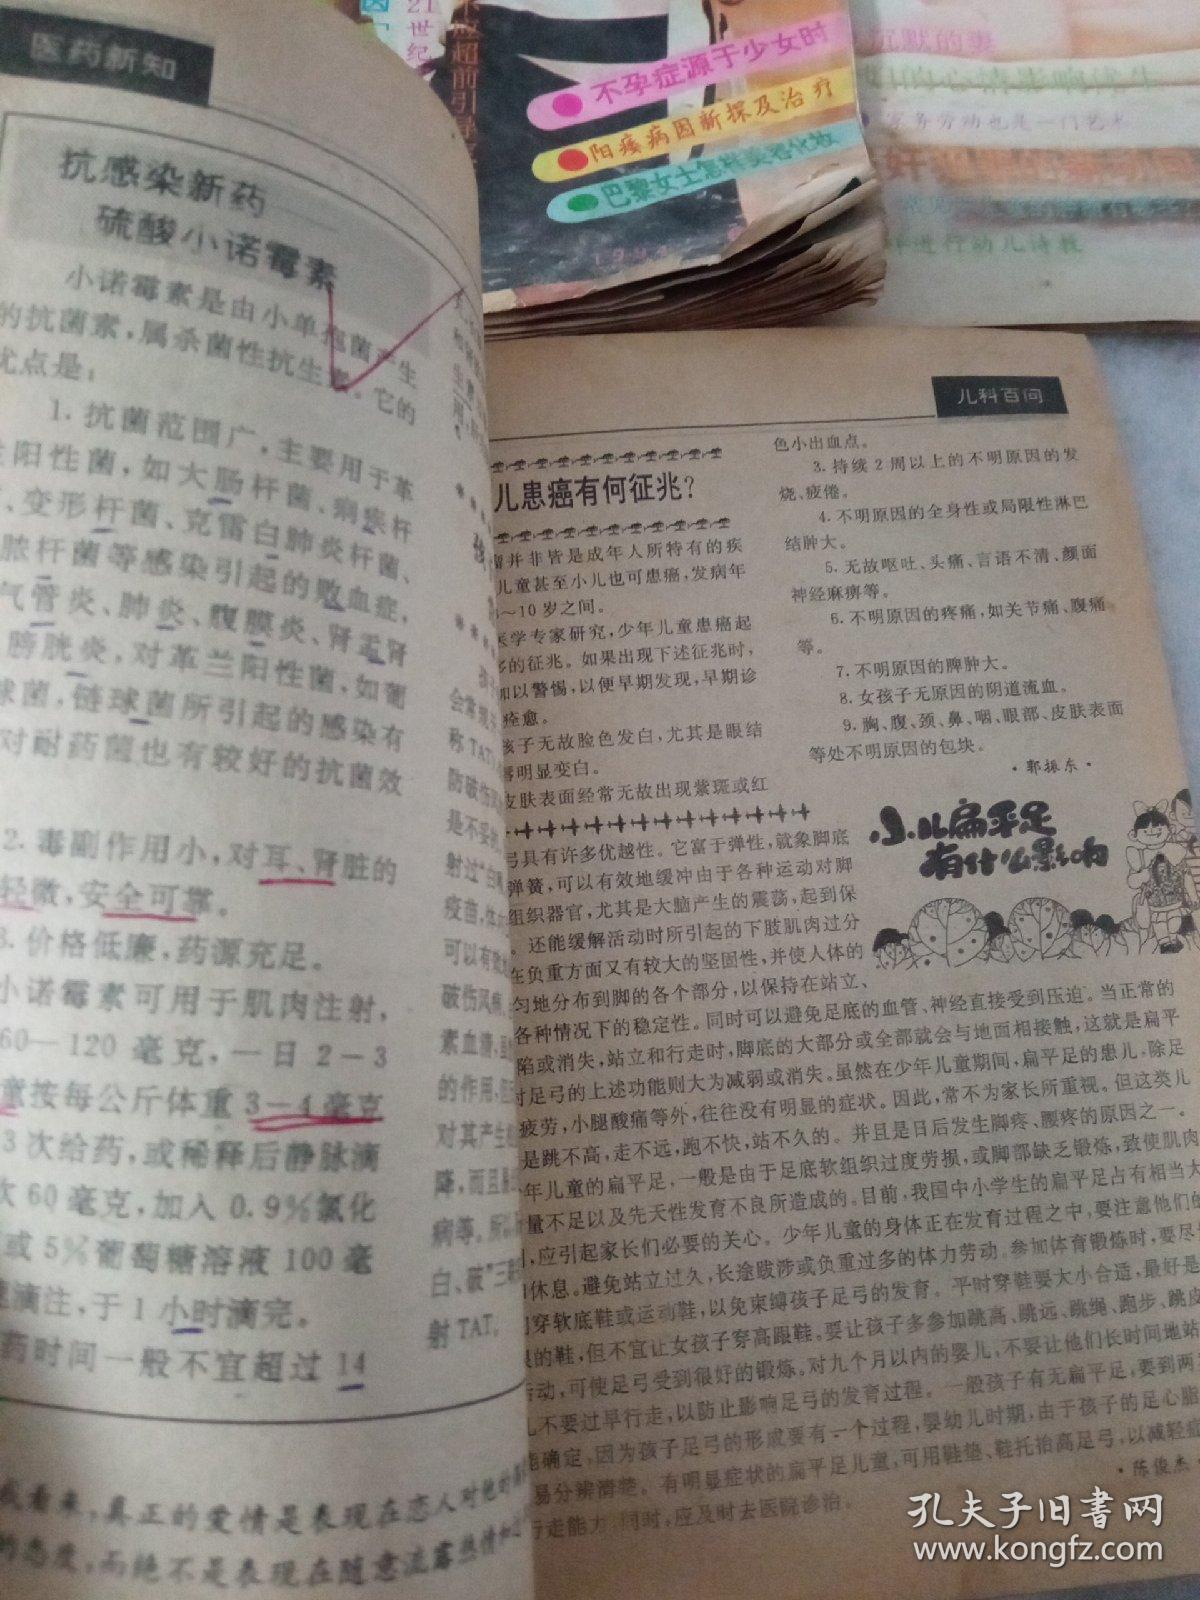 医药新知
抗感染新药
硫酸小诺霉素
小诺霉素是由小单孢菌产生
的抗菌素，属杀菌性抗生素。它的
优点是：
1. 抗菌范围广，主要用于革
阳性菌，如大肠杆菌、痢疾杆
、变形杆菌、克雷白肺炎杆菌、
脓杆菌等感染引起的败血症，
气管炎、肺炎、腹膜炎、肾盂肾
膀胱炎，对革兰阳性菌，如葡
球菌，链球菌所引起的感染有
对耐药菌也有较好的抗菌效
2. 毒副作用小，对耳、肾脏的
轻微，安全可靠。
3. 价格低廉，药源充足。
小诺霉素可用于肌肉注射，
60—120毫克，一日2—3
童按每公斤体重3—4毫克
3次给药，或稀释后静脉滴
次60毫克，加入0.9%氯化
或5%葡萄糖溶液100毫
滴注，于1小时滴完。
药时间一般不宜超过14
我看来，真正的爱情是表现在恋人对他的
的态度，而绝不是表现在随意流露热情
会常规
称TAT
防破伤
是不妥
射过“白
疫苗，
可以有
破伤风
素血清，
的作用，
对其产生
降，而且
病等。所
白、破”三
射TAT。
21世纪
超前引导
不孕症源于少女时
阳痿病因新探及治疗
巴黎女士怎样美容化妆
沉默的妻
家务劳动也是一门艺术
进行幼儿诗教
儿科百问
儿患癌有何征兆？
瘤并非皆是成年人所特有的疾
儿童甚至小儿也可患癌，发病年
～10岁之间。
医学专家研究，少年儿童患癌起
多的征兆。如果出现下述征兆时，
加以警惕，以便早期发现，早期诊
痊愈。
孩子无故脸色发白，尤其是眼结
唇明显变白。
皮肤表面经常无故出现紫斑或红
色小出血点。
3. 持续2周以上的不明原因的发
烧、疲倦。
4. 不明原因的全身性或局限性淋巴
结肿大。
5. 无故呕吐、头痛、言语不清、颜面
神经麻痹等。
6. 不明原因的疼痛，如关节痛、腹痛
等。
7. 不明原因的脾肿大。
8. 女孩子无原因的阴道流血。
9. 胸、腹、颈、鼻、咽、眼部、皮肤表面
等处不明原因的包块。
·郭振东·
小儿扁平足
有什么影响
弓具有许多优越性。它富于弹性，就象脚底
弹簧，可以有效地缓冲由于各种运动对脚
组织器官，尤其是大脑产生的震荡，起到保
。还能缓解活动时所引起的下肢肌肉过分
在负重方面又有较大的坚固性，并使人体的
匀地分布到脚的各个部分，以保持在站立、
各种情况下的稳定性。同时可以避免足底的血管、神经直接受到压迫。当正常的
陷或消失，站立和行走时，脚底的大部分或全部就会与地面相接触，这就是扁平
时足弓的上述功能则大为减弱或消失。虽然在少年儿童期间，扁平足的患儿，除足
疲劳，小腿酸痛等外，往往没有明显的症状。因此，常不为家长所重视。但这类儿
是跳不高，走不远，跑不快，站不久的。并且是日后发生脚疼、腰疼的原因之一。
年儿童的扁平足，一般是由于足底软组织过度劳损，或脚部缺乏锻炼，致使肌肉
量不足以及先天性发育不良所造成的。目前，我国中小学生的扁平足占有相当大
，应引起家长们必要的关心。少年儿童的身体正在发育过程之中，要注意他们的
休息。避免站立过久，长途跋涉或负重过多的体力劳动。参加体育锻炼时，要尽
穿软底鞋或运动鞋，以免束缚孩子足弓的发育。平时穿鞋要大小合适，最好是
跟的鞋，但不宜让女孩子穿高跟鞋。要让孩子多参加跳高、跳远、跳绳、跑步、跳皮
动，可使足弓受到很好的锻炼。对九个月以内的婴儿，不要让他们长时间地站
儿不要过早行走，以防止影响足弓的发育过程。一般孩子有无扁平足，要到两
能确定，因为孩子足弓的形成要有一个过程，婴幼儿时期，由于孩子的足心脂
易分辨清楚。有明显症状的扁平足儿童，可用鞋垫、鞋托抬高足弓，以减轻症
行走能力。同时，应及时去医院诊治。
·陈俊杰·
孔夫子旧书网
www.kongfz.com